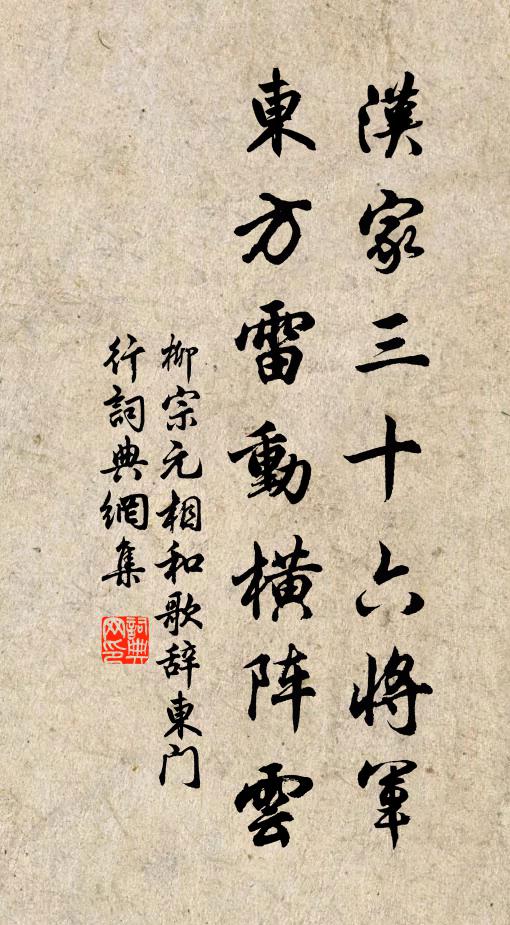 漢家三十六將軍
東方雷動橫阵雲
柳宗元相和歌辞東门
行詞典網集
詞典網印